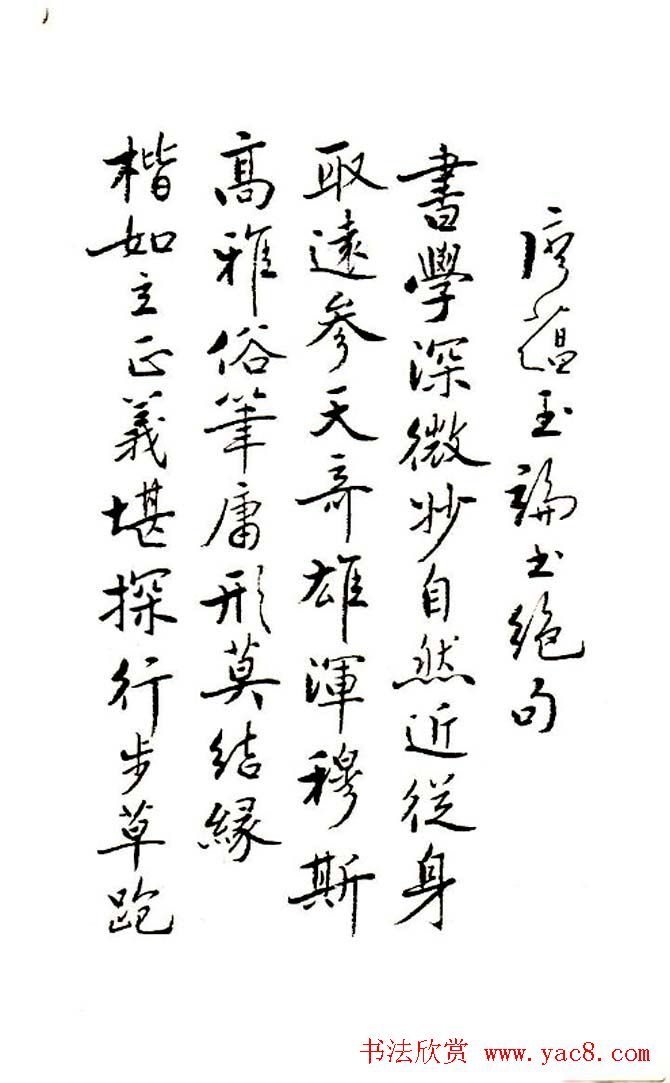 廖蕴玉論书絕句
書學深微妙自然近從身
取遠參天奇雄渾穆斯
高雅俗筆庸形莫結緣
楷如立正義堪探行步草跑
书法欣赏 www.yac8.com